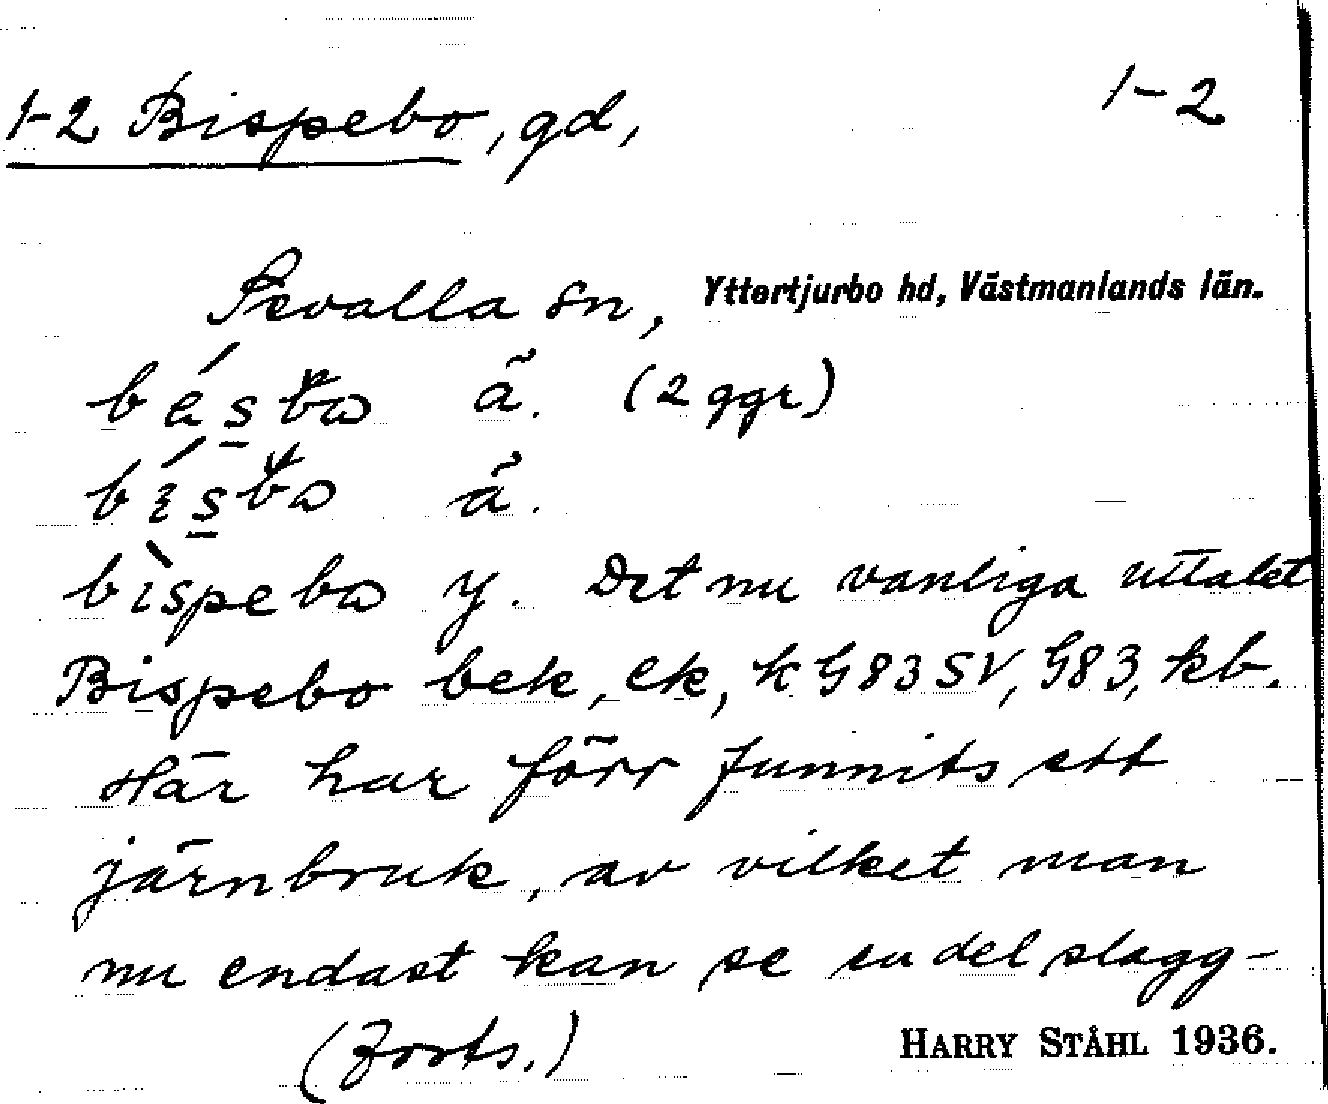 1-2 Bispebo, gd, 1-2
Sevalla sn, Yttertjurbo hd, Västmanlands län.
ä. (2 ggr)
ä.
bìspebo y. Det nu vanliga uttalet
Bispebo bek, ek, k G83SV, G83, kb.
Här har förr funnits ett
järnbruk, av vilket man
nu endast kan se en del slagg-
(Forts.) HARRY STÅHL 1936.